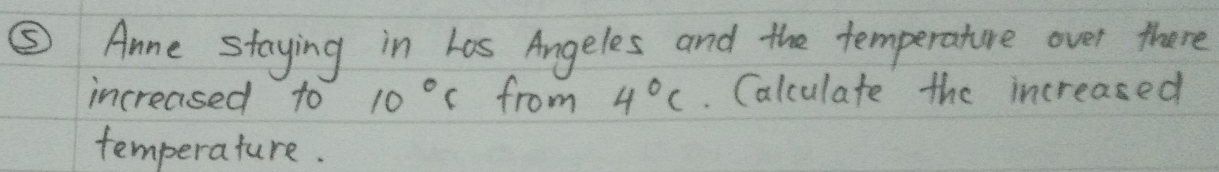 ⑤ Anne staying in Los Angeles and the temperature over there
increased to 10 °c from 4°c. Calculate the increased
temperature.